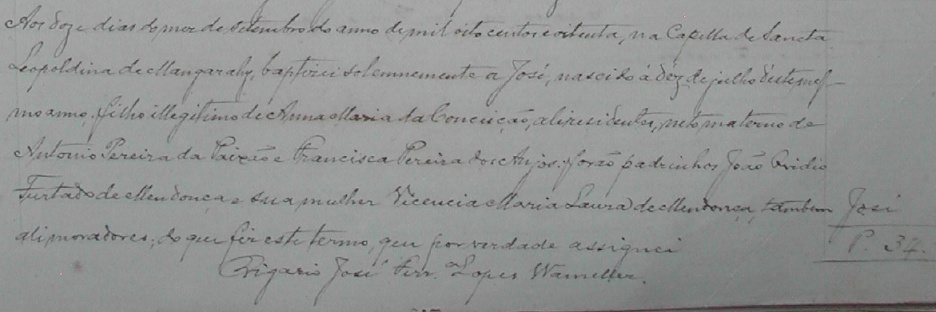 Aos doze dias do mez de Setembro do anno de mil oito centos e oitenta, na Capella de Sancta
Leopoldina de Mangarahy, baptizei solemnemente a José, nascido á dez de julho d'este mes-
mo anno, filho illegitimo de Anna Maria da Conceição, ali residente, neto materno de
Antonio Pereira da Paixão e Francisca Pereira dos Anjos: forão padrinhos João Ovidio
Furtado de Mendonça e sua mulher Vicencia Maria Laura de Mendonça, tambem
ali moradores, do que fiz este termo, que por verdade assignei
Vigario José Lopes Wameller.
José
P. 37.